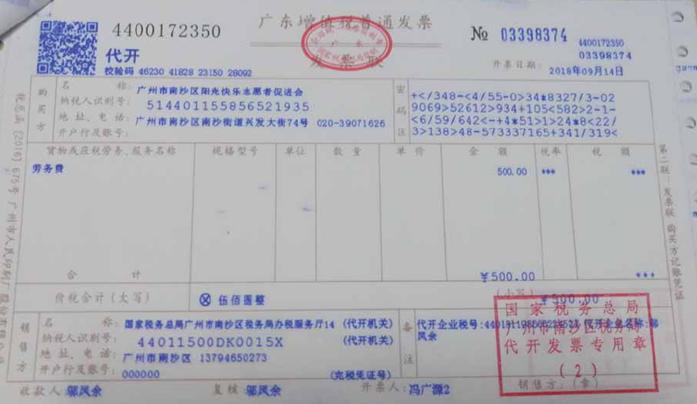 4400172350
广东增值税普通发票
№ 03398374
4400172350
03398374
代开
校验码 46230 41828 23150 26092
开票日期: 2018年09月14日
购买方
名称: 广州市南沙区阳光快乐志愿者促进会
纳税人识别号: 514401155856521935
地址、电话: 广州市南沙区南沙街道兴发大街74号 020-39071626
开户行及账号:
密码区
+</348-<4/55-0>34*8327/3-02
9069>52612>934+105<582>2-1-
<6/59/642<-+4*51>1>24*8<22/
3>138>48-573337165+341/319<
货物或应税劳务、服务名称 规格型号 单位 数量 单价 金额 税率 税额
劳务费 500.00 *** ***
合计 ¥500.00 ***
价税合计(大写) ⊗ 伍佰圆整 (小写) ¥500.00
销售方
名称: 国家税务总局广州市南沙区税务局办税服务厅14 (代开机关)
纳税人识别号: 44011500DK0015X (代开机关)
地址、电话: 广州市南沙区 13794650273
开户行及账号: 000000 (完税凭证号)
备注
代开企业税号: 代开企业名称:邬
凤余
国家税务总局
广州市南沙区税务局
代开发票专用章
(2)
收款人: 邬凤余 复核: 邬凤余 开票人: 冯广源2 销售方: (章)
第二联:发票联 购买方记账凭证